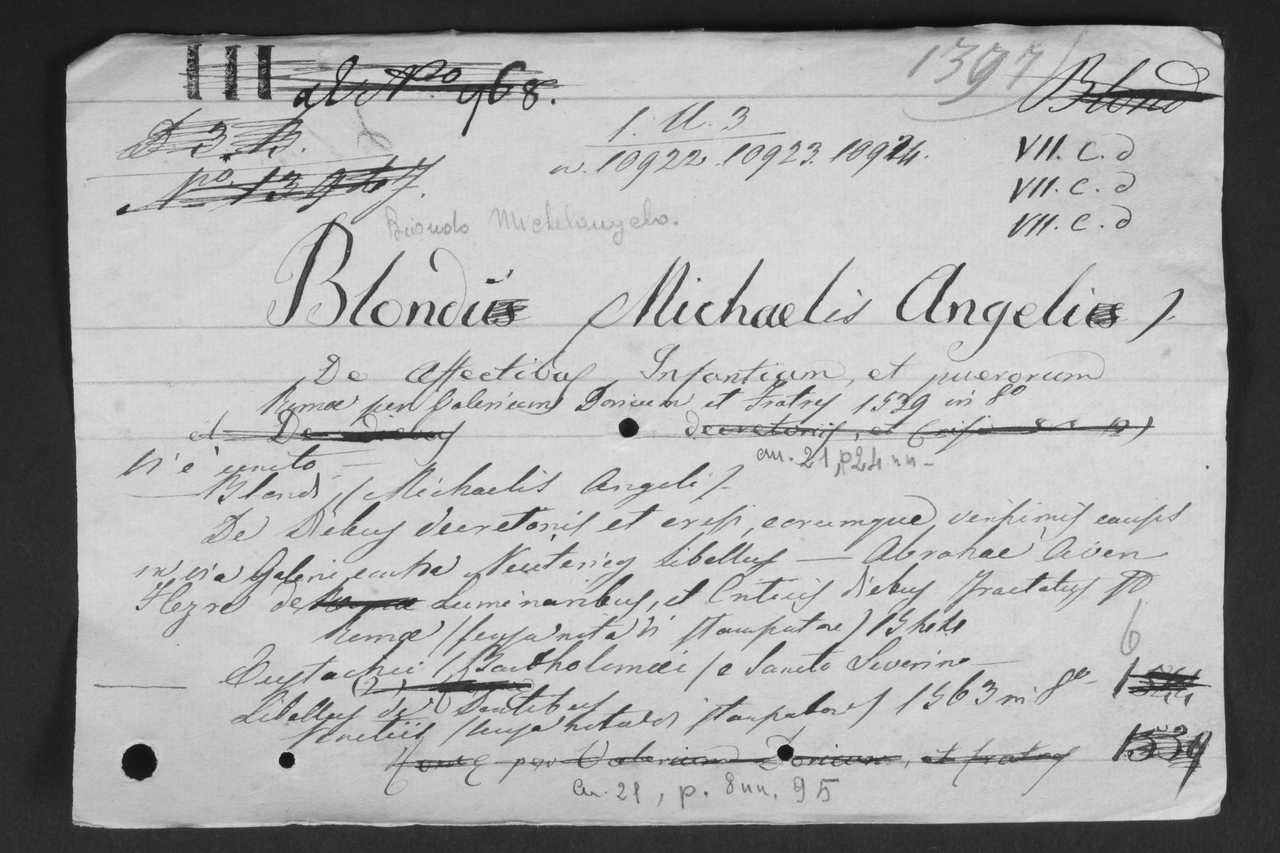 III al N.ro 968.
1397
Blond
D 3 B.
1. U. 3
N.ro 1397
n. 10922. 10923. 10924.
VII. C. d
VII. C. d
VII. C. d
Biondo Michelangelo.
Blondi (Michaelis Angeli)
De affectibus Infantium, et puerorum
Romæ per Valerium Doricum et Fratres 1539 in 8º
et De Diebus decretoriis, et Crisi
an. 21, p 24 nn -
V'è unito
Blondi, (Michaelis Angeli)
De Diebus decretoriis et crisi, eorumque verissimis causis
in via Galeni contra Neotericos Libellus — Abrahae Aven
Hezre de Luminaribus, et Criticis diebus Tractatus 8º
Romæ (senza nota di stampatore)
Eustachii (Bartholomæi) a Sancto Severino
Libellus de Dentibus
Venetiis senza nota di stampatore 1563 in 8º
6
per Valerium Doricum, et fratres
1539
an. 21, p. 8 nn. 95